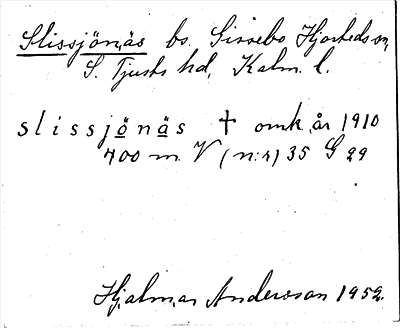 Slissjönäs bs. Sissebo Hjorteds sn,
S. Tjusts hd, Kalm. l.
slissjönäs † omk. år 1910
400 m. V (n:r) 35 G 29
Hjalmar Andersson 1952.